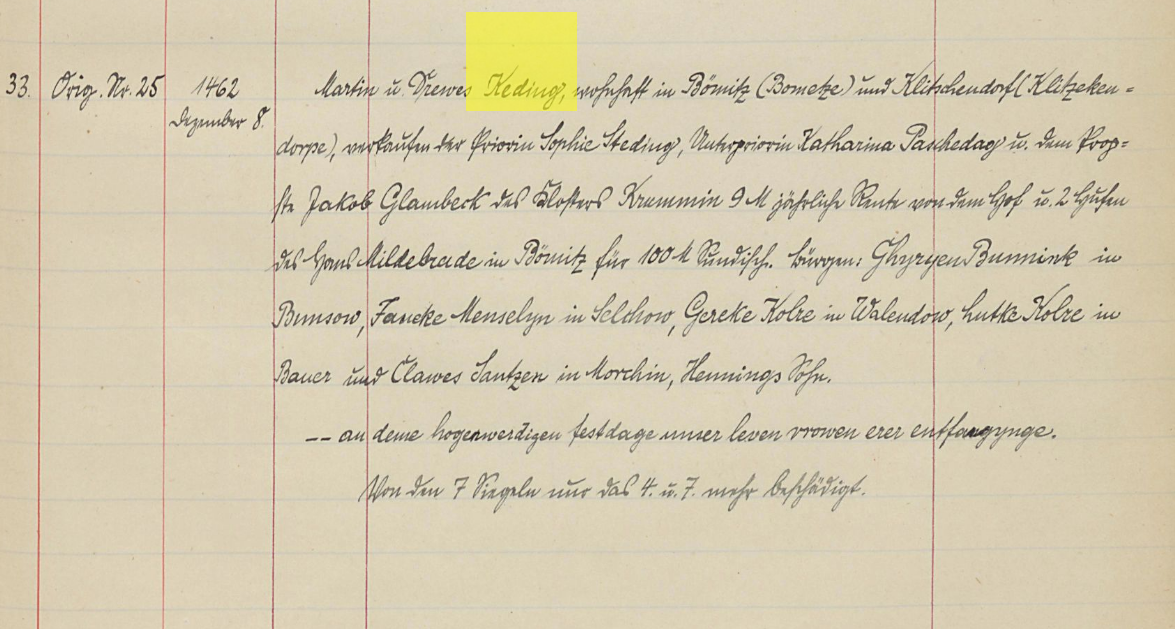 33. Orig. Nr. 25 1462 Martin u. Drewes Keding, wohnhaft in Bömitz (Bometze) und Klitschendorf (Klitzeken=
Dezember 8. dorpe), verkaufen der Priorin Sophie Steding, Unterpriorin Katharina Paschedag u. dem Prop=
ste Jakob Glambeck des Klosters Krummin 9 M jährliche Rente von dem Hof u. 2 Hufen
des Hans Mildebrade in Bömitz für 100 M Sundisch. Bürgen: Ghyryen Bunnink in
Bunsow, Faneke Menselyn in Selchow, Gereke Kolre in Walendow, Lutke Kolre in
Bauer und Clawes Jantzen in Morchin, Hennings Sohn.
-- an deme hogenwerdigen festdage unser leven vrowen erer entfangynge.
Von den 7 Siegeln nur das 4. u. 7. mehr beschädigt.